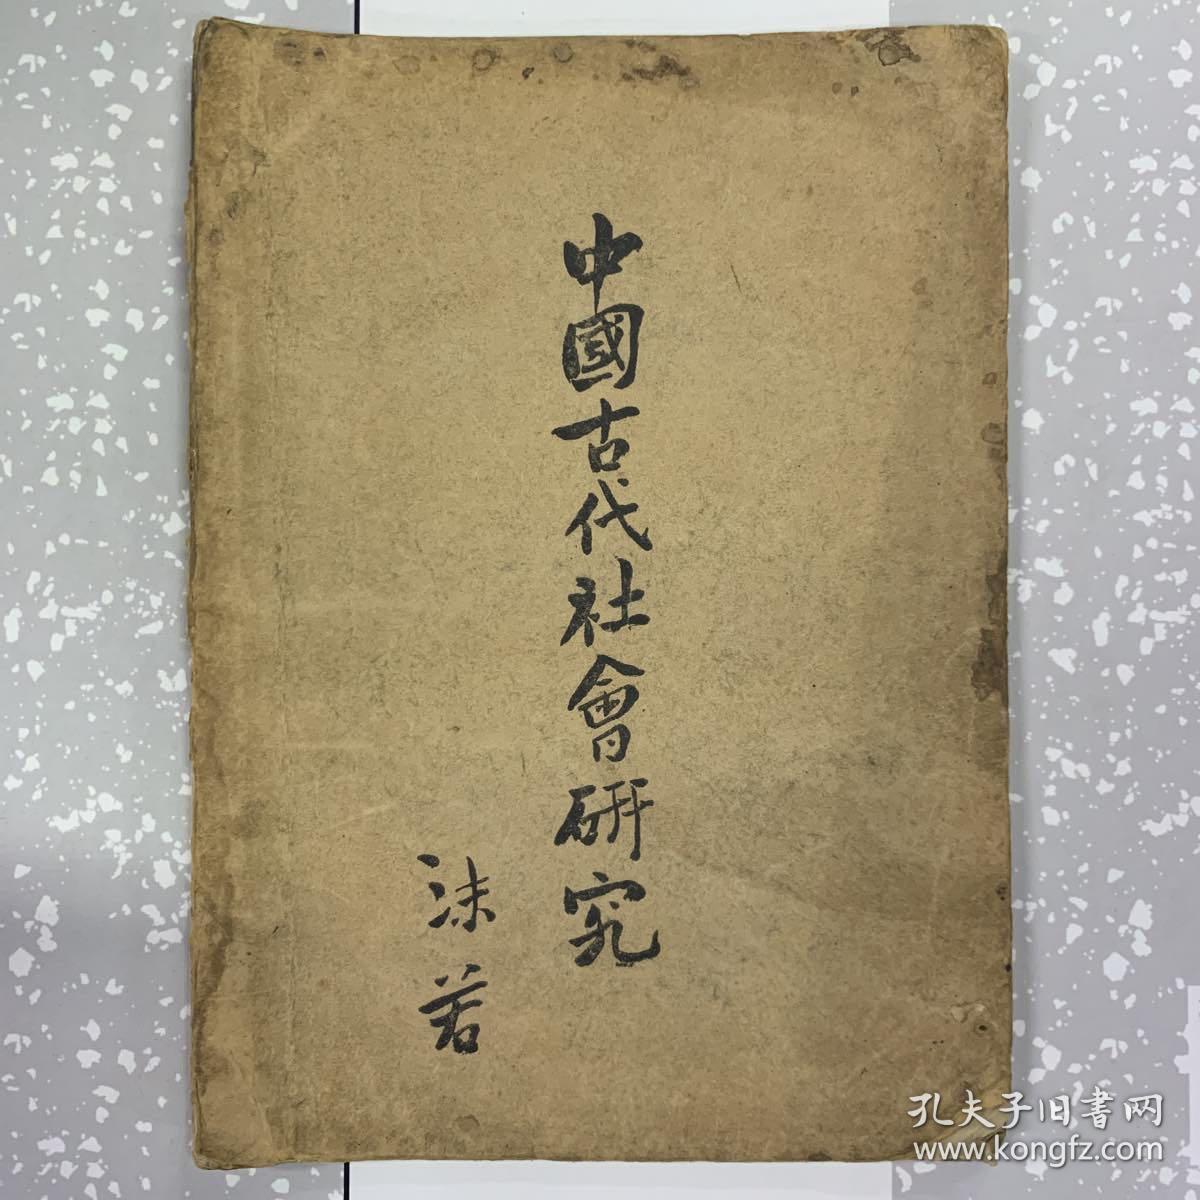 中國古代社會研究
沫若
孔夫子旧書网
www.kongfz.com